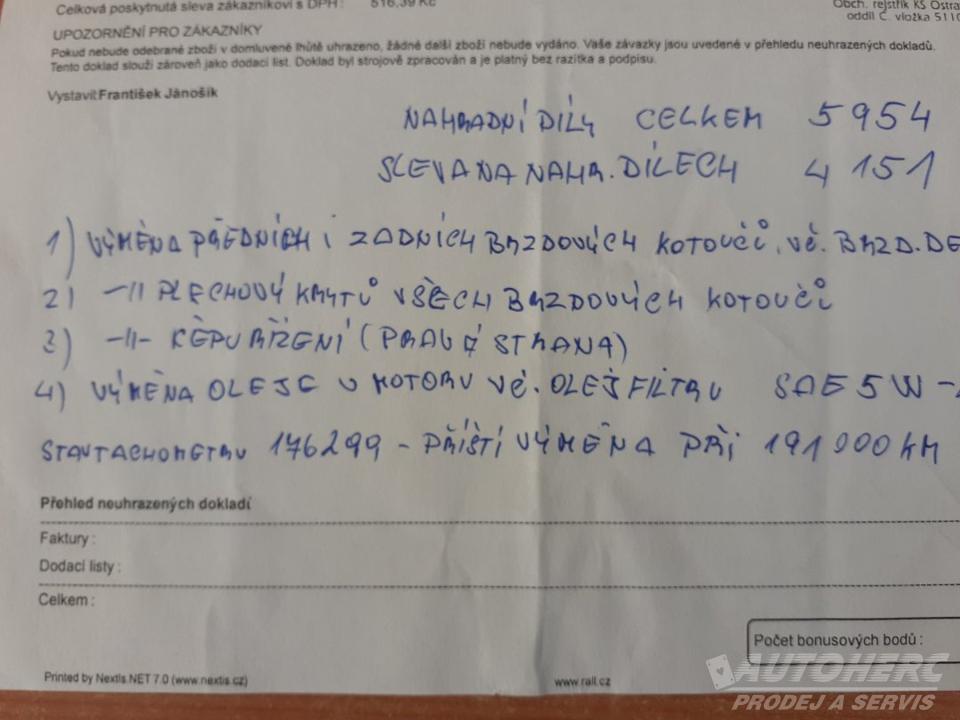 Celková poskytnutá sleva zákazníkovi s DPH : 516,39 Kč
Obch. rejstřík KS Ostra
oddíl C. vložka 5110
UPOZORNĚNÍ PRO ZÁKAZNÍKY
Pokud nebude odebrané zboží v domluvené lhůtě uhrazeno, žádné další zboží nebude vydáno. Vaše závazky jsou uvedené v přehledu neuhrazených dokladů.
Tento doklad slouží zároveň jako dodací list. Doklad byl strojově zpracován a je platný bez razítka a podpisu.
Vystavil: František Jánošík
NAHRADNÍ DÍLY CELKEM 5954
SLEVA NA NAHR. DÍLECH 4151
1) VÝMĚNA PŘEDNÍCH I ZADNÍCH BRZDOVÝCH KOTOUČŮ, VČ. BRZD. DE
2) -||- PLECHOVÝ KRYTŮ VŠECH BRZDOVÝCH KOTOUČŮ
3) -||- ŘÍZENÍ (PRAVÁ STRANA)
4) VÝMĚNA OLEJE V MOTORU VČ. OLEJ FILTRU SAE 5W -
STAV TACHOMETRU 176299 - PŘÍŠTÍ VÝMĚNA PŘI 191000 KM
Přehled neuhrazených dokladů
Faktury :
Dodací listy :
Celkem :
Počet bonusových bodů :
Printed by Nextis.NET 7.0 (www.nextis.cz)
www.rail.cz
AUTOHERC
PRODEJ A SERVIS